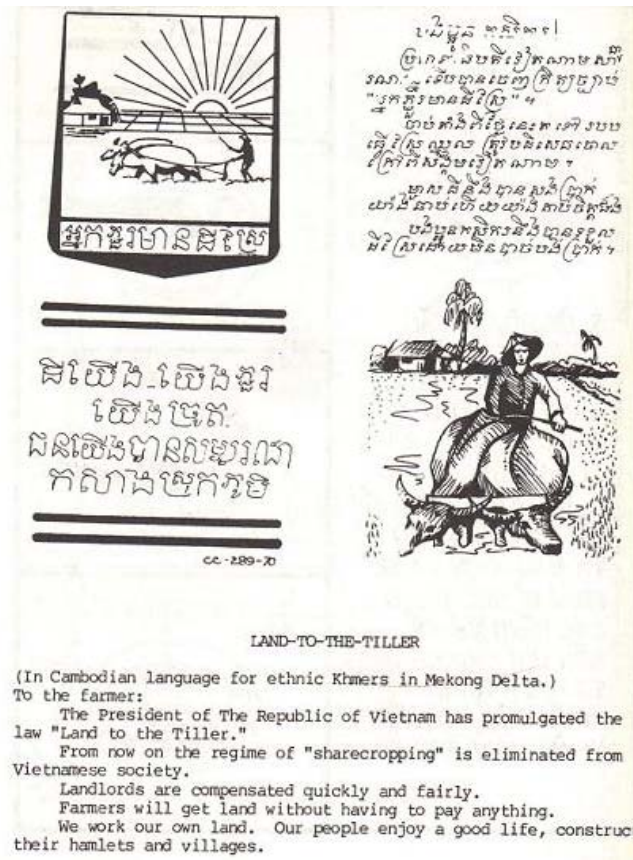 អ្នកភ្ជួរមានដីស្រែ
ដីយើង..យើងភ្ជួរ
យើងច្រូត.
ជនយើងបានសម្បូរណា
កសាងស្រុកភូមិ
CC-289-70
បងប្អូន
វៀតណាមសាធា
រណៈ ទើបបានចេញក្រិត្យច្បាប់
"អ្នកភ្ជួរមានដីស្រែ" ។
ចាប់តាំងពីថ្ងៃនេះតទៅ របប
ធ្វើស្រែឈ្នួល ត្រូវបដិសេធចោល
ក្រៅពីសង្គមវៀតណាម ។
ម្ចាស់ដីនឹងបានសងប្រាក់
យ៉ាងឆាប់ហើយយ៉ាងគាប់ចិត្តផង
បងប្អូនកសិករនឹងបានទទួល
ដីស្រែដោយមិនបាច់បង់ប្រាក់ ។
LAND-TO-THE-TILLER
(In Cambodian language for ethnic Khmers in Mekong Delta.)
To the farmer:
The President of The Republic of Vietnam has promulgated the
law "Land to the Tiller."
From now on the regime of "sharecropping" is eliminated from
Vietnamese society.
Landlords are compensated quickly and fairly.
Farmers will get land without having to pay anything.
We work our own land. Our people enjoy a good life, construc
their hamlets and villages.